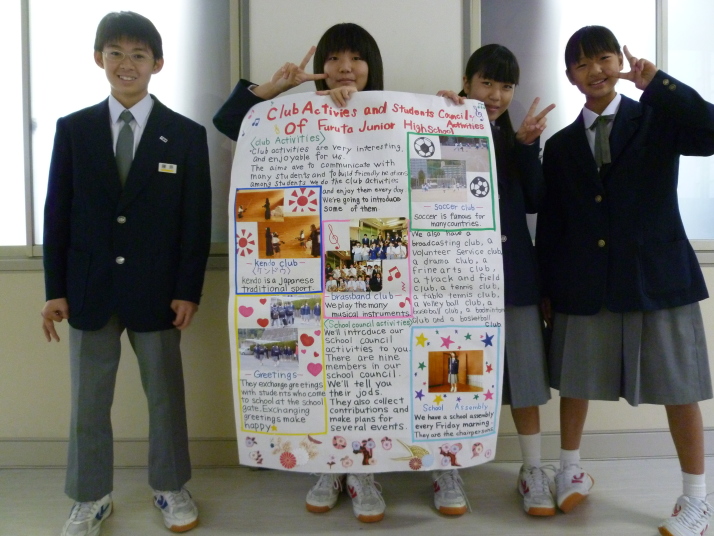 Club Activies and Students Council
Activities
Of Furuta Junior High School
<Club Activities>
Club activities are very interesting,
and enjoyable for us.
The aims ave to communicate with
many students and to build friendly relations
among students We do the club activities
and enjoy them every day
We're going to introduce
some of them
- Kendo club -
(ケンドウ)
Kendo is a Japanese
traditional sport.
- brassband club -
We play the many
musical instruments
- Soccer club -
Soccer is famous for
many countries.
We also have a
broadcasting club, a
volunteer service club
a drama club, a
frine arts club,
a track and field
club, a tennis club,
a table tennis club,
a volley ball club, a
baseball club, a badminton
club and a basketball
club
- Greetings -
They exchange greetings
with students who come
to school at the school
gate. Exchanging
greetings make
happy
<School council activities>
We'll introduce our
school council
activities to you
There are nine
members in our
school council.
We'll tell you
their jods.
They also collect
contributions and
make plans for
several events.
School Assembly
We have a school assembly
every Friday morning
They are the chairpersons